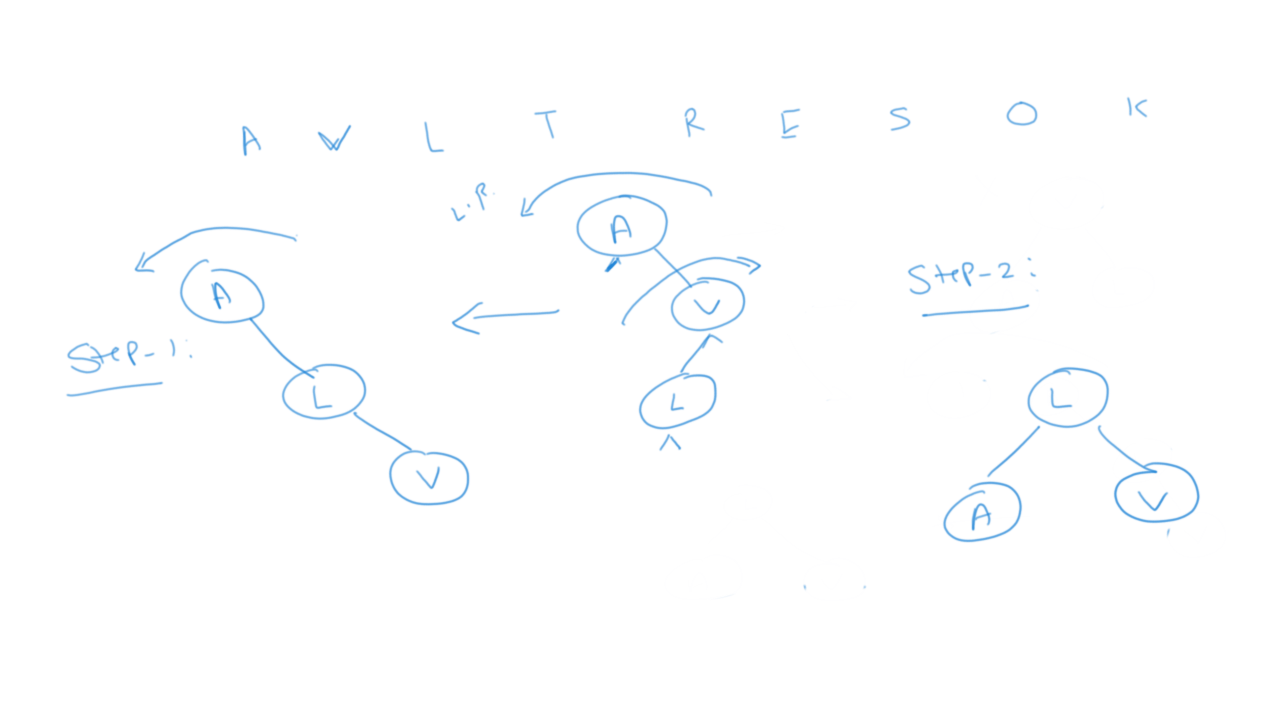 A V L T R E S O K
L.R.
A
V
L
Step-1:
A
L
V
Step-2:
L
A
V